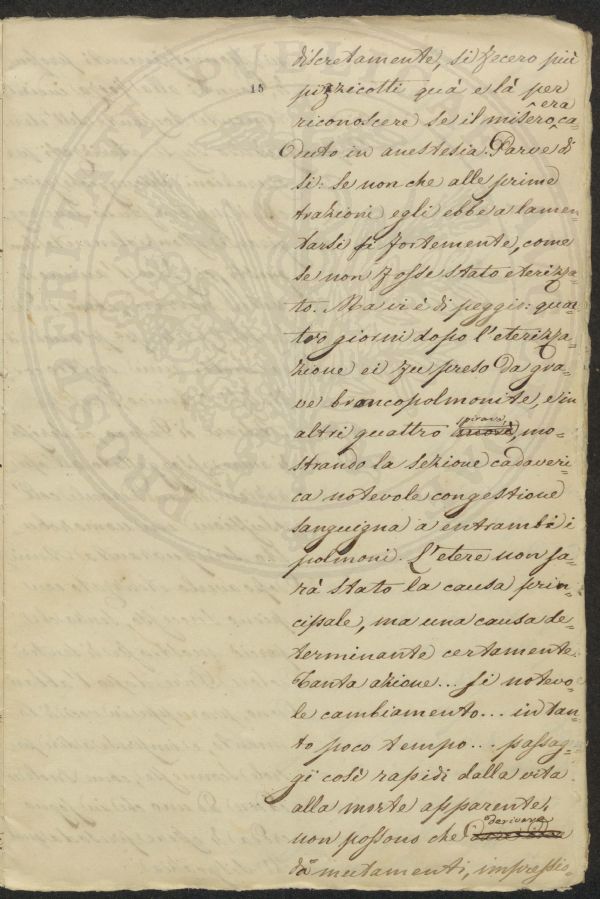 discretamente, si fecero più
15
pizzicotti quà e là per
riconoscere se il misero era ca=
duto in anestesia. Parve di
si: se non che alle prime
trazioni egli ebbe a lamen=
tarsi si fortemente, come
se non fosse stato eterizza=
to. Ma vi è di peggio: quat=
tro giorni dopo l'eterizza=
zione ei fu preso da gra=
ve broncopolmonite, e in
altri quattro spirava, mo=
strando la sezione cadaveri=
ca notevole congestione
sanguigna a entrambi i
polmoni. L'etere non sa=
rà stato la causa prin=
cipale, ma una causa de=
terminante certamente.
Tanta azione... sì notevo=
le cambiamento... in tan=
to poco tempo... passag=
gi così rapidi dalla vita
alla morte apparente,
non possono che derivare
da mutamenti, impressio=